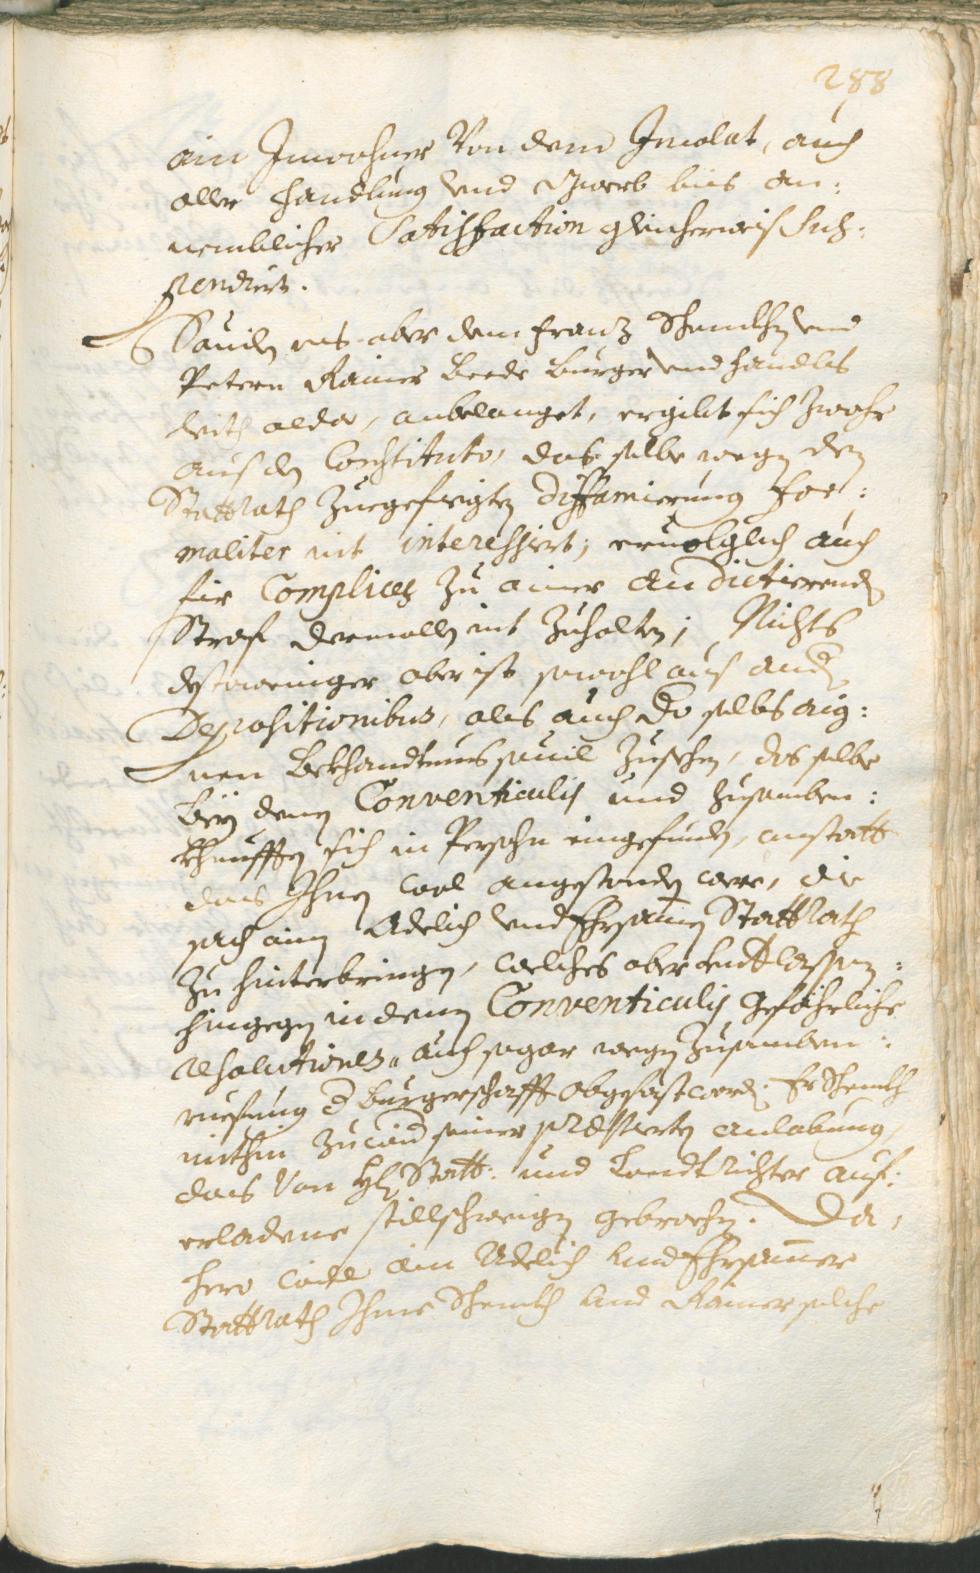 288
ain Inwohner Von dem Incolat, auch
aller Handlung und Gwerb bis an:
nemblicher Satisfaction gleicherweis Sus:
pendiert.
Sovil es aber dem Frantz Schmelz und
Petern Rainer beede Burger und Handls
leith alda, anbelanget, ergibt sich zwahr
aus den Constituto, das selbe wegen den
Stattrath zuegefiegten Diffamierung for:
maliter nit interessiert, eruolglich auch
fir Complices zu ainer andictierenden
Straff dermallen nit zuhalten; Nichts
destoweniger aber ist sowohl aus
Depositionibus, als auch do selbs aig:
nen Bekhandtnus souil zusehen, das selbe
bey denen Conventiculis und zusamben:
khunfften sich in Persohn eingefunden, anstatt
das Ihnen wol angestanden were, die
sach ainem Adelich und Ehrsamen Stattrath
zu hinterbringen, welches aber undtlassen:
hingegen in denen Conventiculis gefährliche
resolutiones, auch sogar wegen zusamben:
rueffung der Burgerschafft abgefast worden. Er
mithin zuwid seiner praestierten anlobung
das Von H: Statt: und Landtrichter auf:
erladene stillschweigen gebrochen. Da:
hero wirdt ain Adelich und Ehrsamer
Stattrath Ihme und Rainer solche